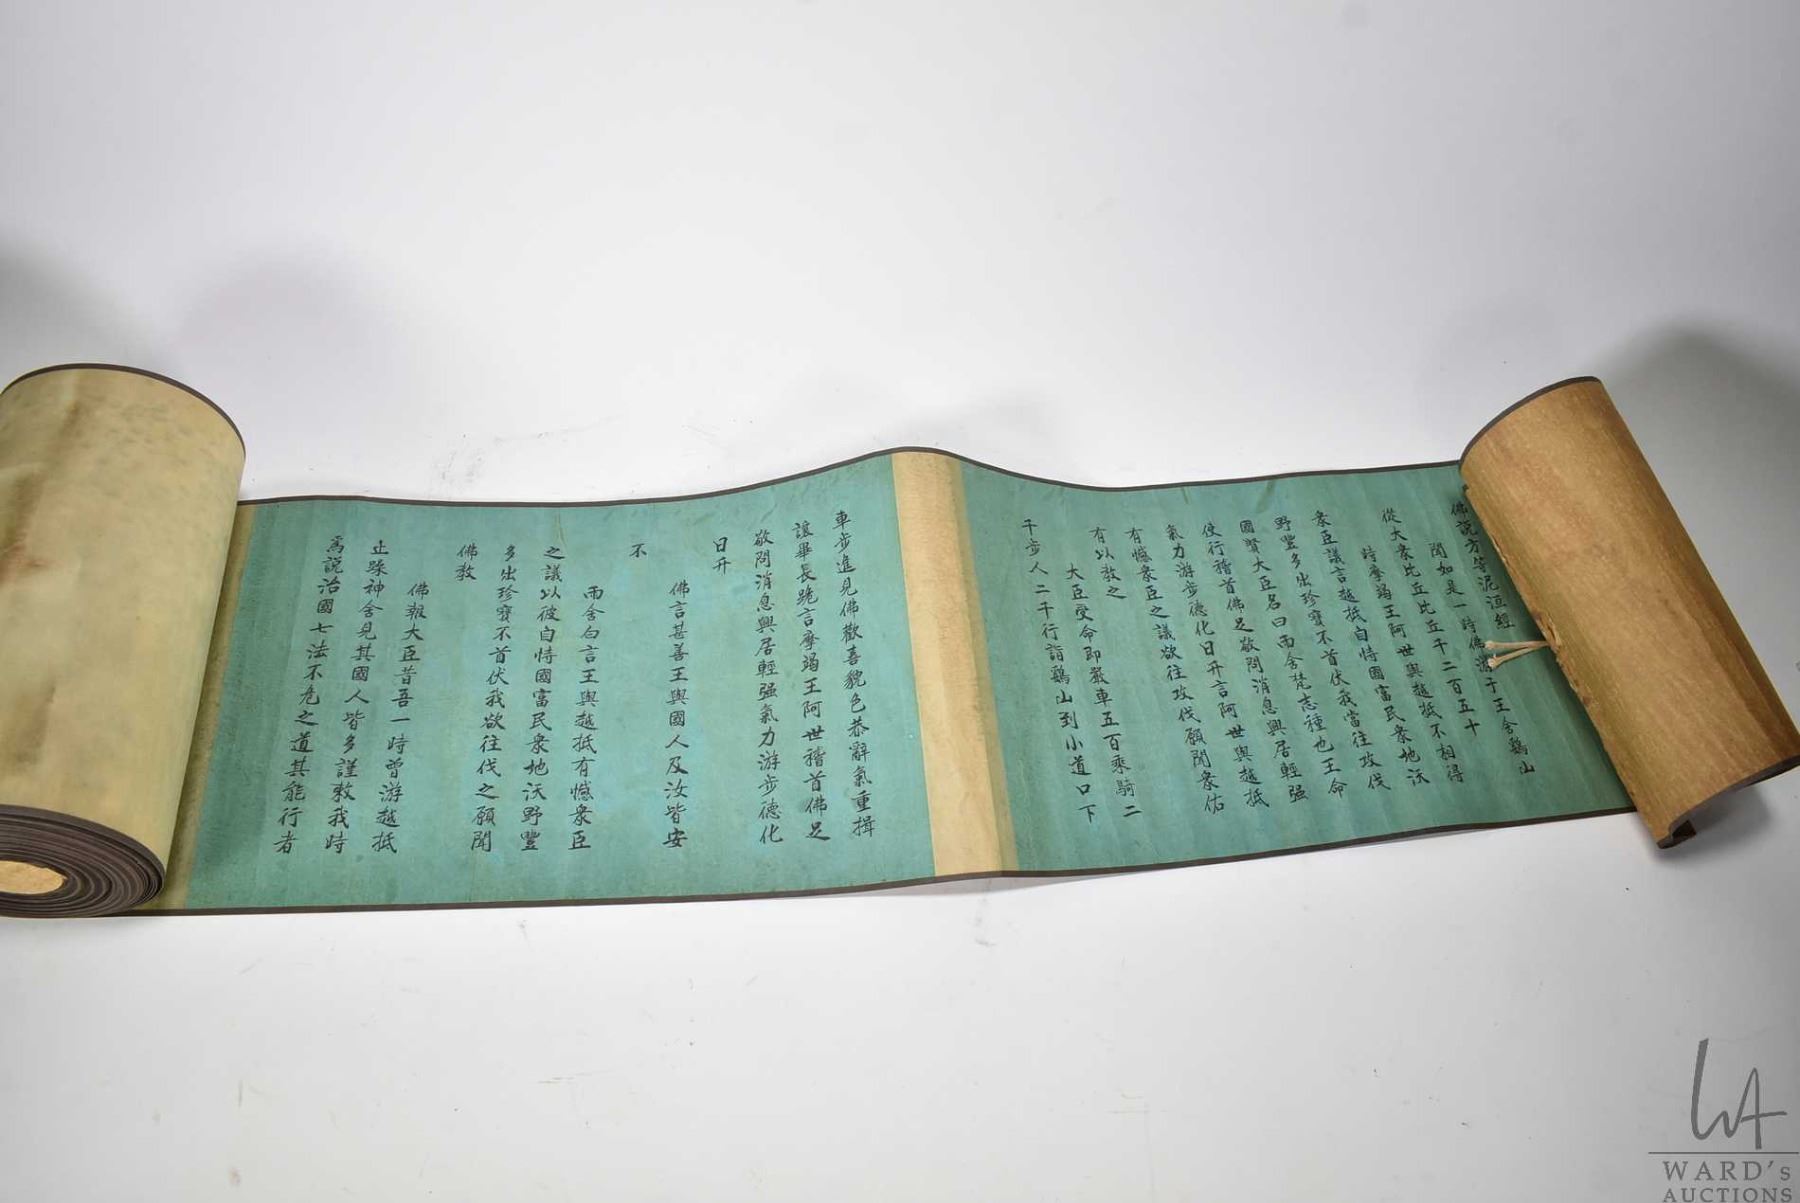 佛說方等泥洹經
聞如是一時佛遊于王舍鷄山
從大衆比丘比丘千二百五十
時摩竭王阿世與越抵不相得
衆臣議言越抵自恃國富民衆地沃
野豐多出珍寶不首伏我當往攻伐
國賢大臣名曰雨舍梵志種也王命
使行稽首佛足敬問消息興居輕强
氣力游步德化日升言阿世與越抵
有憾衆臣之議欲往攻伐願聞衆佑
有以教之
大臣受命即嚴車五百乘騎二
千步人二千行詣鷄山到小道口下
車步進見佛歡喜貌色恭辭氣重揖
讓畢長跪言摩竭王阿世稽首佛足
敬問消息興居輕强氣力游步德化
日升
不
佛言甚善王與國人及汝皆安
雨舍白言王與越抵有憾衆臣
之議以彼自恃國富民衆地沃野豐
多出珍寶不首伏我欲往伐之願聞
佛教
佛報大臣昔吾一時曾游越抵
止躁神舍見其國人皆多謹敕我時
爲說治國七法不危之道其能行者
WARD's
AUCTIONS